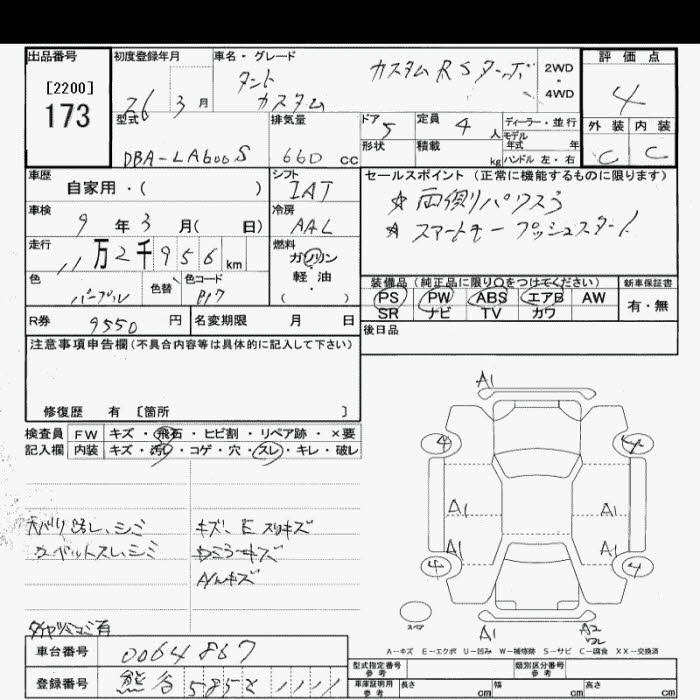 出品番号
[2200]
173
初度登録年月
26 3 月
車名・グレード
タント
カスタム
カスタム RSターボ
2WD
・
4WD
評価点
4
外装 内装
C C
型式
DBA-LA600S
排気量
660 cc
ドア 5
形状
定員 4 人
積載 kg
ディーラー・並行
モデル
年式 年
ハンドル 左・右
車歴
自家用・( )
シフト
IAT
車検
9 年 3 月( 日)
冷房
AAC
セールスポイント (正常に機能するものに限ります)
☆ 両側パワスラ
☆ スマートキー プッシュスタート
走行
11 万 2 千 9 5 6 km
燃料
ガソリン
軽・油
( ・ )
色
パープル
色替
色コード
P17
装備品(純正品に限り○をつけてください)
PS PW ABS エアB AW
SR ナビ TV カワ
新車保証書
有・無
R券 9550 円
名変期限 月 日
後日品
注意事項申告欄(不具合内容等は具体的に記入して下さい)
修復歴 有 〔箇所 〕
検査員 FW キズ・飛石・ヒビ割・リペア跡・×要
記入欄 内装 キズ・汚れ・コゲ・穴・スレ・キレ・破レ
天バリ汚レ、シミ
カーペットスレ、シミ
キズ、E スリキズ
ミラーキズ
A/Wキズ
有
A1
4 4
A1 A1
A1 A1
4 4
スペア
A1 A2
A-キズ E-エクボ U-凹み W-補修跡 S-サビ C-腐食 XX-交換済
車台番号 0064867
登録番号 熊谷 585 2 1111
型式指定番号
参考
類別区分番号
参考
車庫証明用
参考
長さ cm 幅 cm 高さ cm